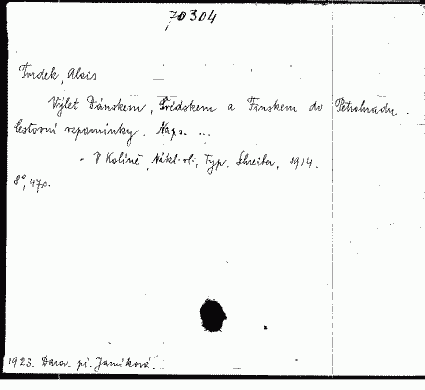 70304
Tvrdek, Alois
Výlet Dánskem, Švédskem a Finskem do Petrohradu.
Cestovní vzpomínky. Naps. ...
- V Kolíně, Nákl. vl., Typ. Schreiber, 1914.
8°, 47 s.
1923. Darov. pí. Janíková.